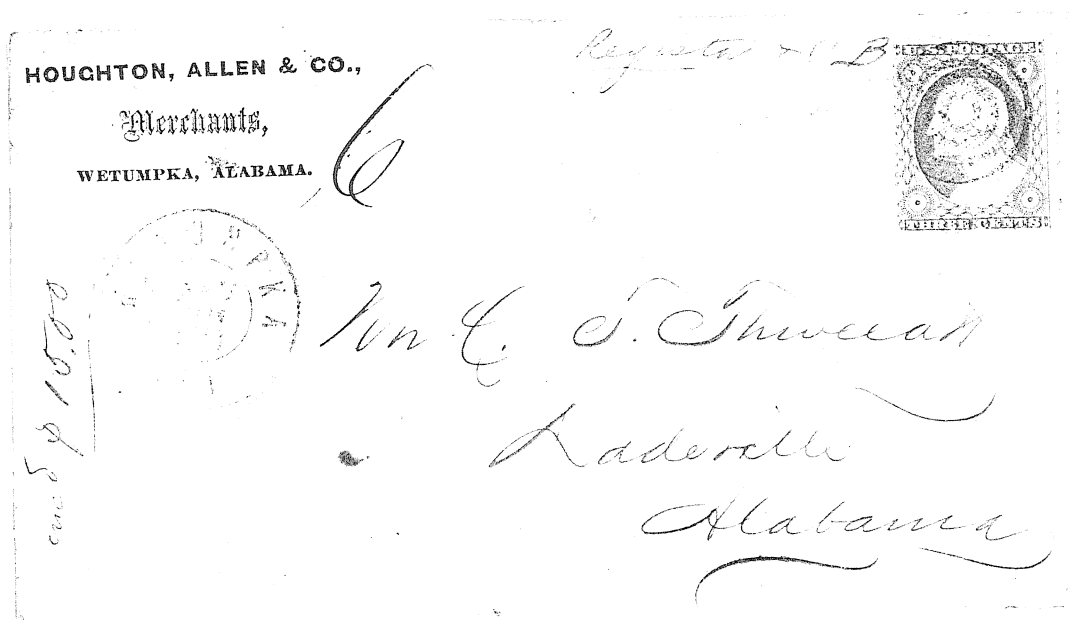 HOUGHTON, ALLEN & CO.,
Merchants,
WETUMPKA, ALABAMA.
6
Register B
U.S. POSTAGE
THREE CENTS
UMPKA
Hon. J. Thweatt
Ladeville
Alabama
encd $ 15.00